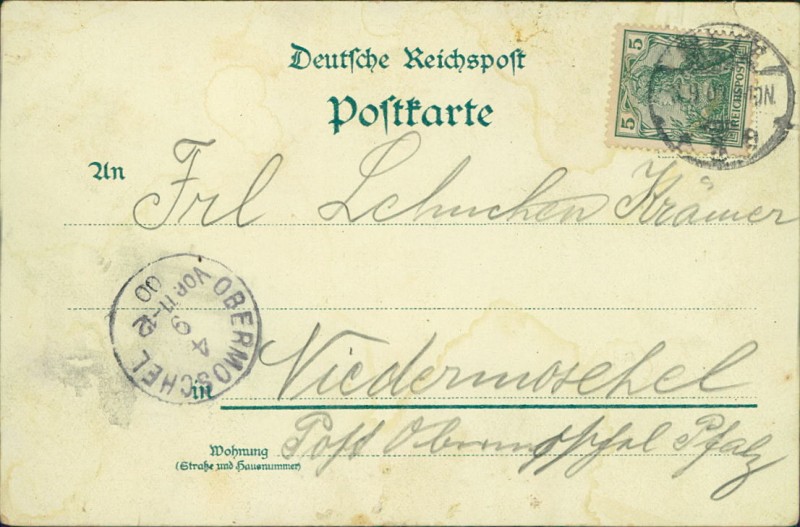 Deutsche Reichspost
Postkarte
5
5
REICHSPOST
9 0
ON.
An Frl Lehnchen Krämer
OBERMOSCHEL
VOR. 11-12
4 9
00
in Niedermoschel
Wohnung
(Straße und Hausnummer)
Post Obermoschel Pfalz